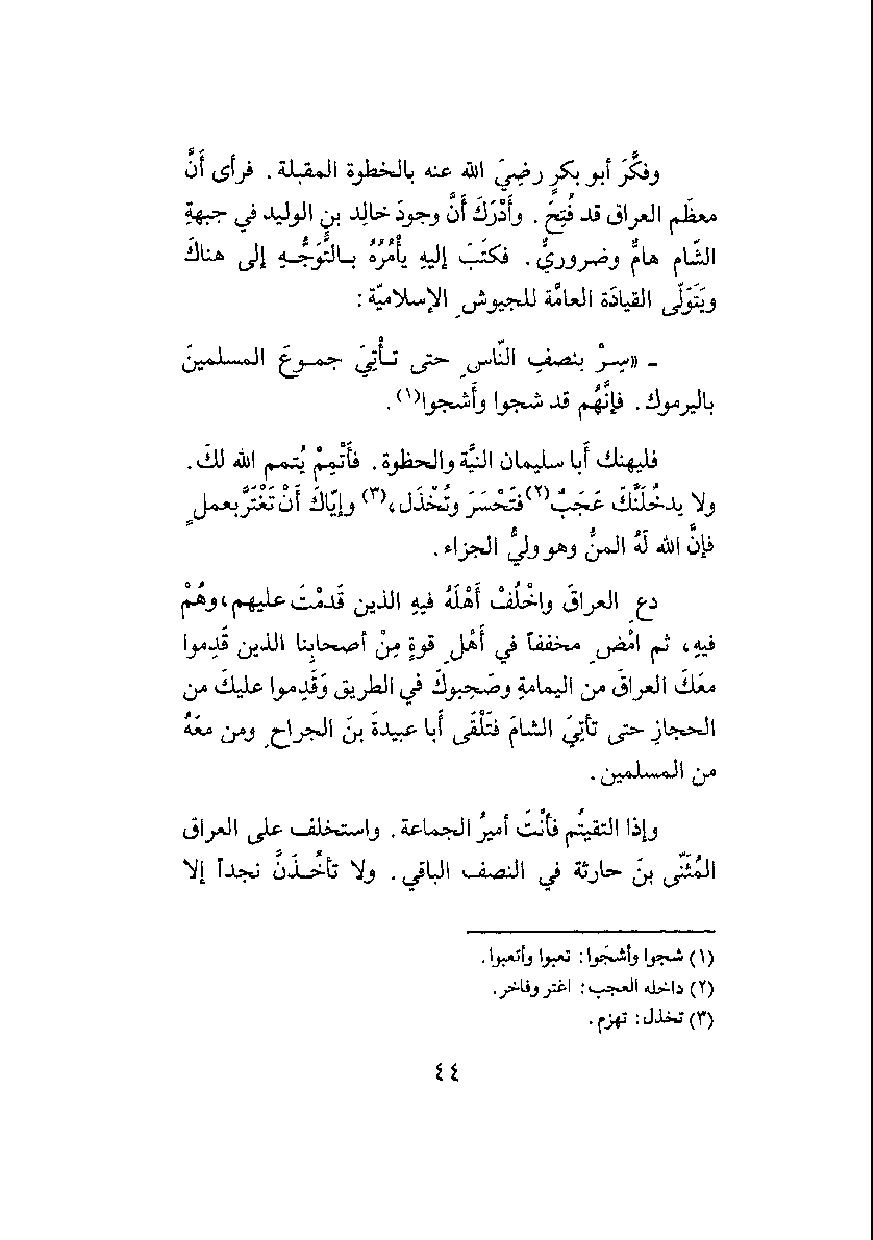 وفكَّرَ أبو بكرٍ رضِيَ الله عنه بالخطوة المقبلة. فرأى أَنَّ
معظَم العراق قد فُتِحَ. وأَدْرَكَ أَنَّ وجودَ خالدِ بنِ الوليد في جبهةِ
الشّام هامٌّ وضروريٌّ. فكتَبَ إليهِ يأْمُرُهُ بالتَّوَجُّهِ إلى هناكَ
ويَتَوَلّى القيادَة العامَّة للجيوشِ الإسلاميّة:
ـ «سِرْ بنصفِ النّاسِ حتى تأْتِيَ جموعَ المسلمينَ
باليرموك. فإنَّهُم قد شجوا وأَشجوا(١).
فليهنك أَبا سليمان النيَّة والحظوة. فأَتْمِمْ يُتمم الله لكَ.
ولا يدخُلَنَّكَ عَجَبٌ(٢) فتَحْسَرَ وتُخْذَل،(٣) وإيّاكَ أَنْ تَغْتَرَّ بعملٍ
فإنَّ الله لَهُ المنُّ وهو وليُّ الجزاء.
دعِ العراقَ واخْلُفْ أَهْلَهُ فيهِ الذين قَدمْتَ عليهم، وهُمْ
فيهِ، ثم امْضِ مخففاً في أَهْلِ قوةٍ مِنْ أصحابِنا الذين قَدِموا
معَكَ العراقَ من اليمامةِ وصَحِبوكَ في الطريق وَقَدِموا عليكَ من
الحجازِ حتى تأتِيَ الشامَ فتَلْقَى أَبا عبيدةَ بنَ الجراحِ ومن معَهُ
من المسلمين.
وإذا التقيتُم فأَنْتَ أميرُ الجماعة. واستخلف على العراق
المُثَنّى بنَ حارثة في النصف الباقي. ولا تأخُذَنَّ نجداً إلا
(١) شجوا وأشجَوا: تعبوا وأتعبوا.
(٢) داخله العجب: اغتر وفاخر.
(٣) تخذل: تهزم.
٤٤